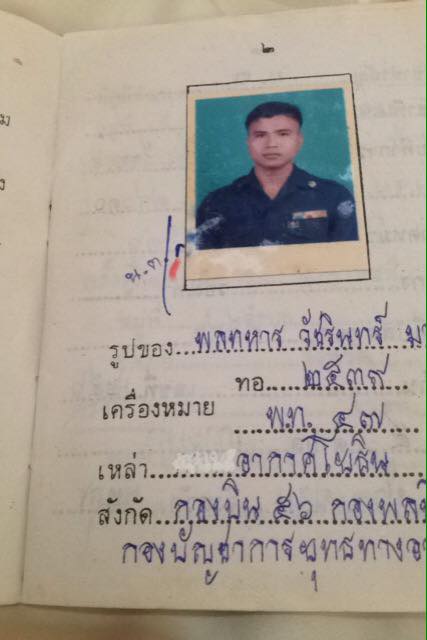 ๒
น.ต.
รูปของ พลทหาร วัชรินทร์
ทอ. ๒๕๓๙
เครื่องหมาย พท. ๔๗
เหล่า อากาศโยธิน
สังกัด กองบิน ๕๖ กองพลบิน
กองบัญชาการยุทธทางอา